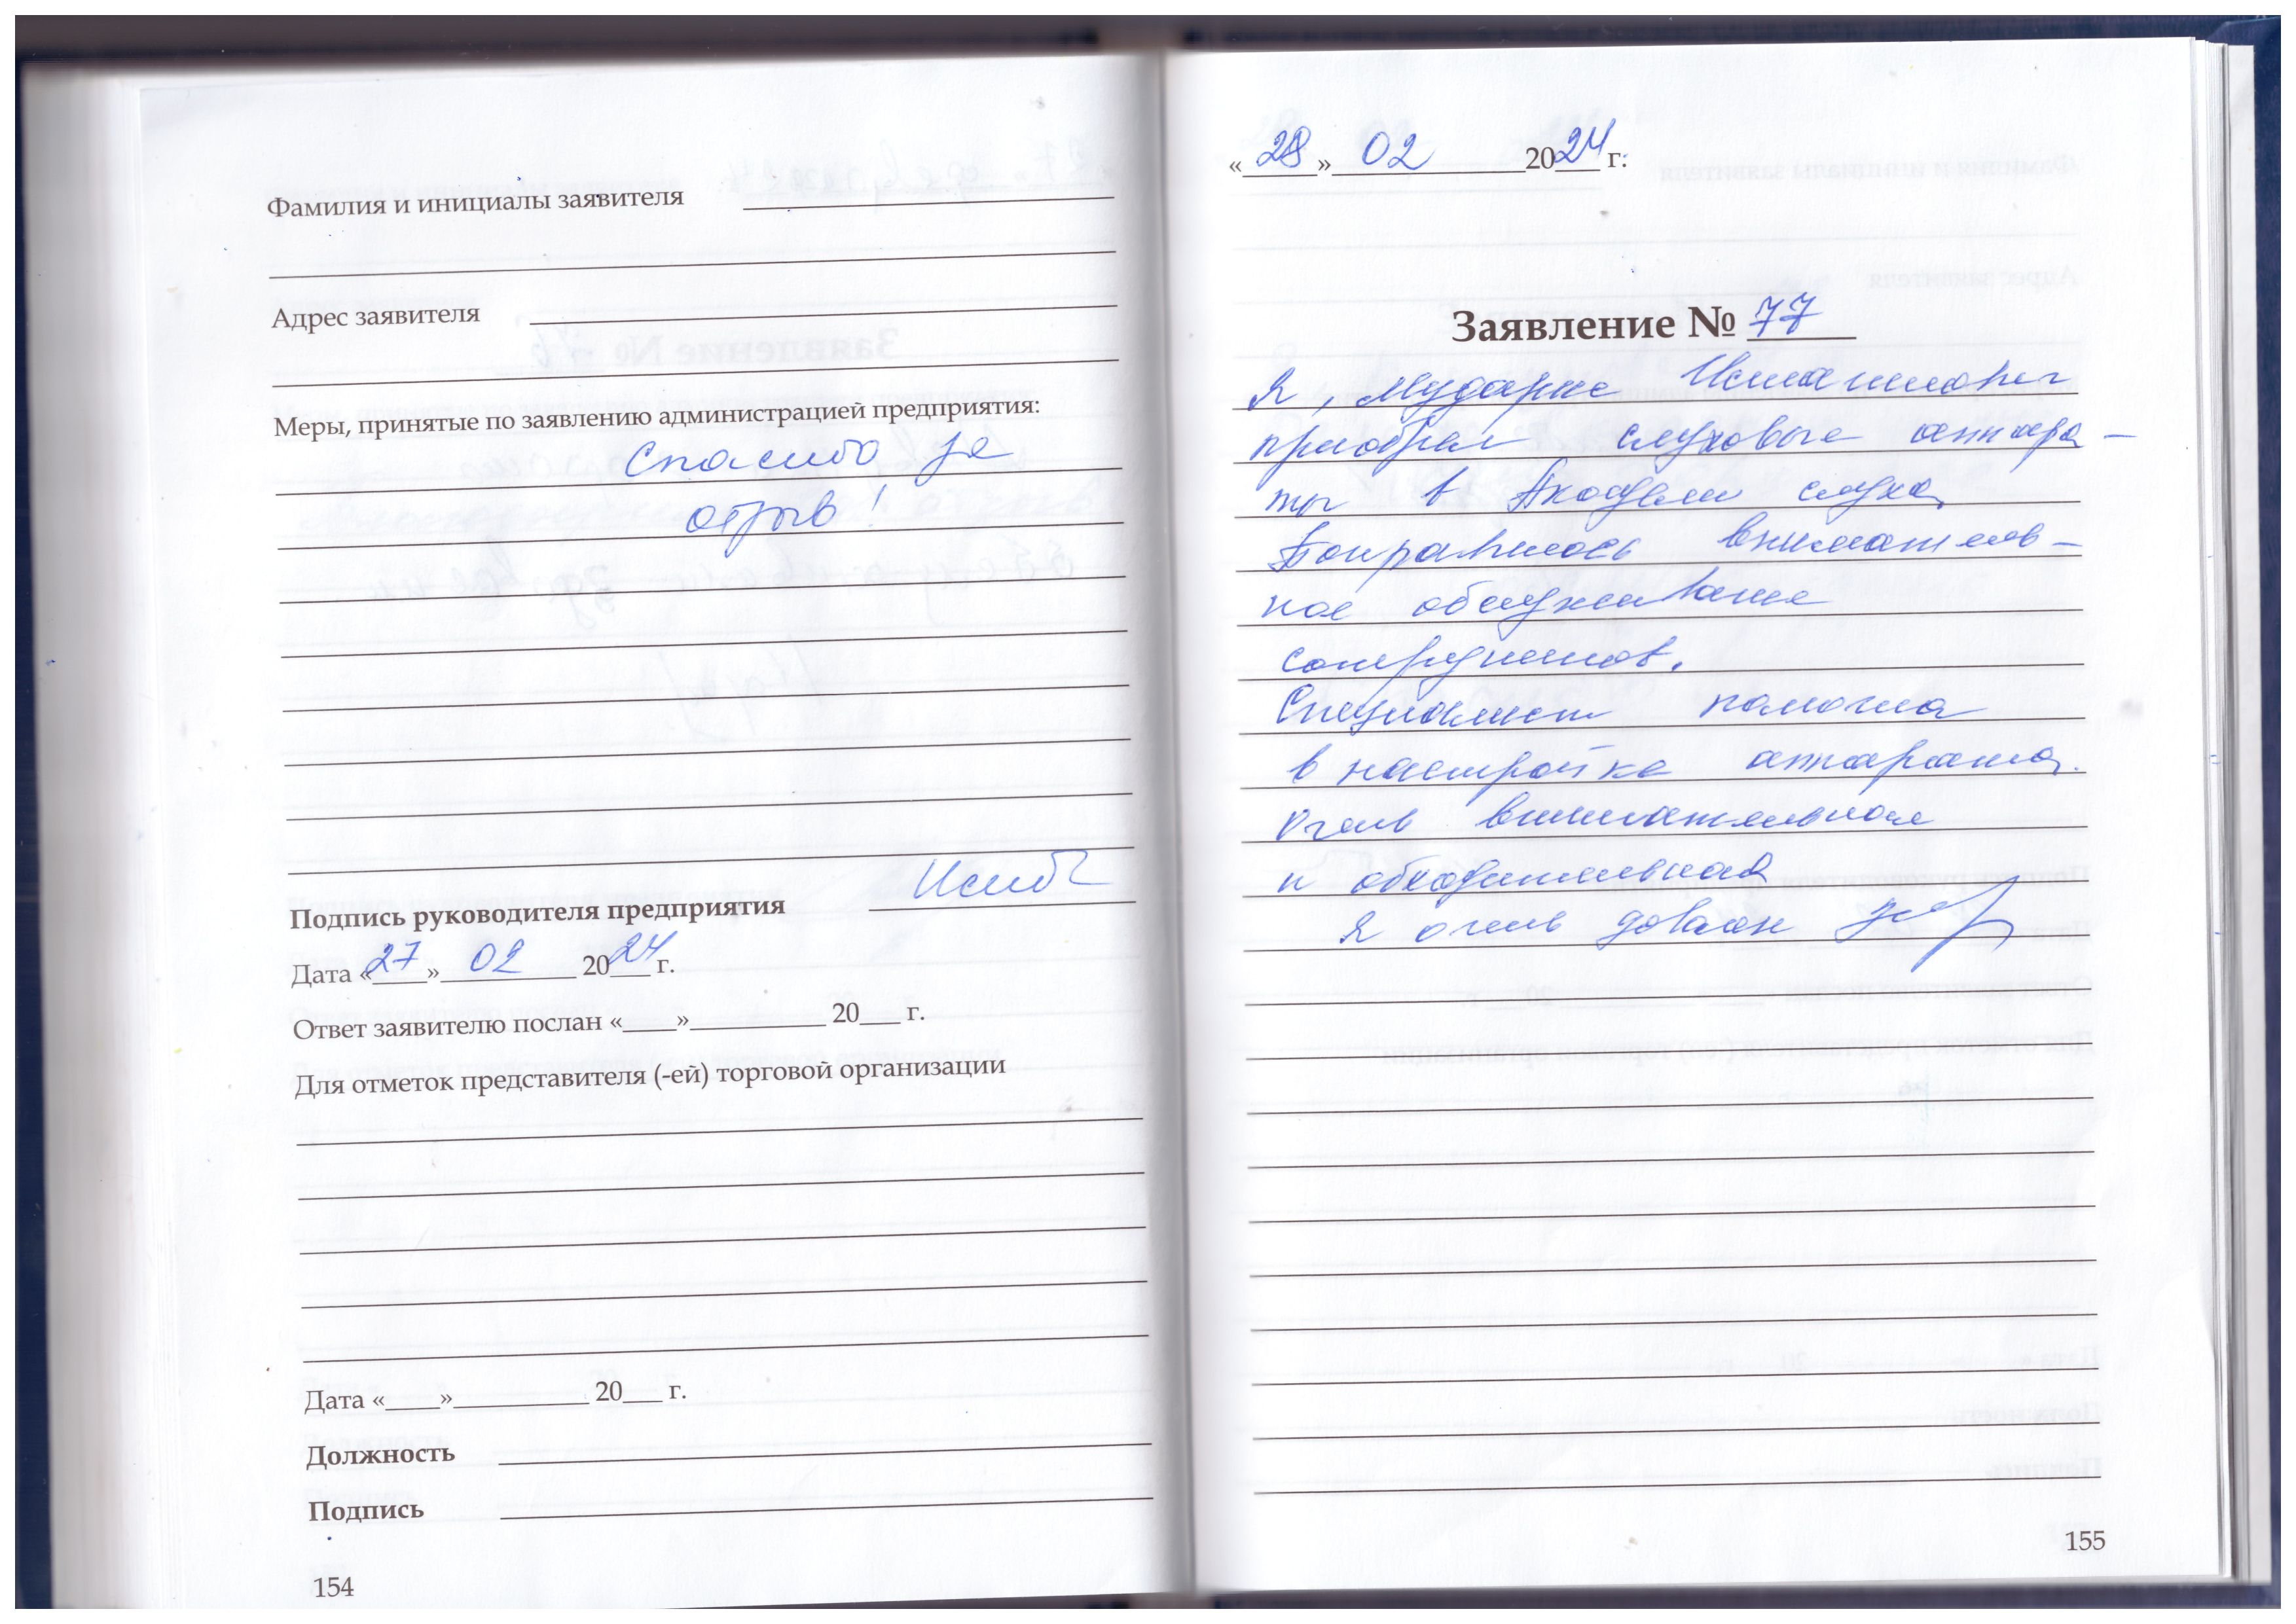 Фамилия и инициалы заявителя
Адрес заявителя
Меры, принятые по заявлению администрацией предприятия:
Спасибо за
отзыв!
Подпись руководителя предприятия
Дата «27» 02 2024 г.
Ответ заявителю послан «____»__________ 20___ г.
Для отметок представителя (-ей) торговой организации
Дата «____»__________ 20___ г.
Должность
Подпись
154
«28» 02 2024 г.
Заявление № 77
Я,
приобрел слуховые аппара-
ты в Академии слуха
Понравилось вниматель-
ное обслуживание
сотрудников.
Специалист помогла
в настройке аппарата.
Очень внимательная
и обходительная
Я очень доволен
155